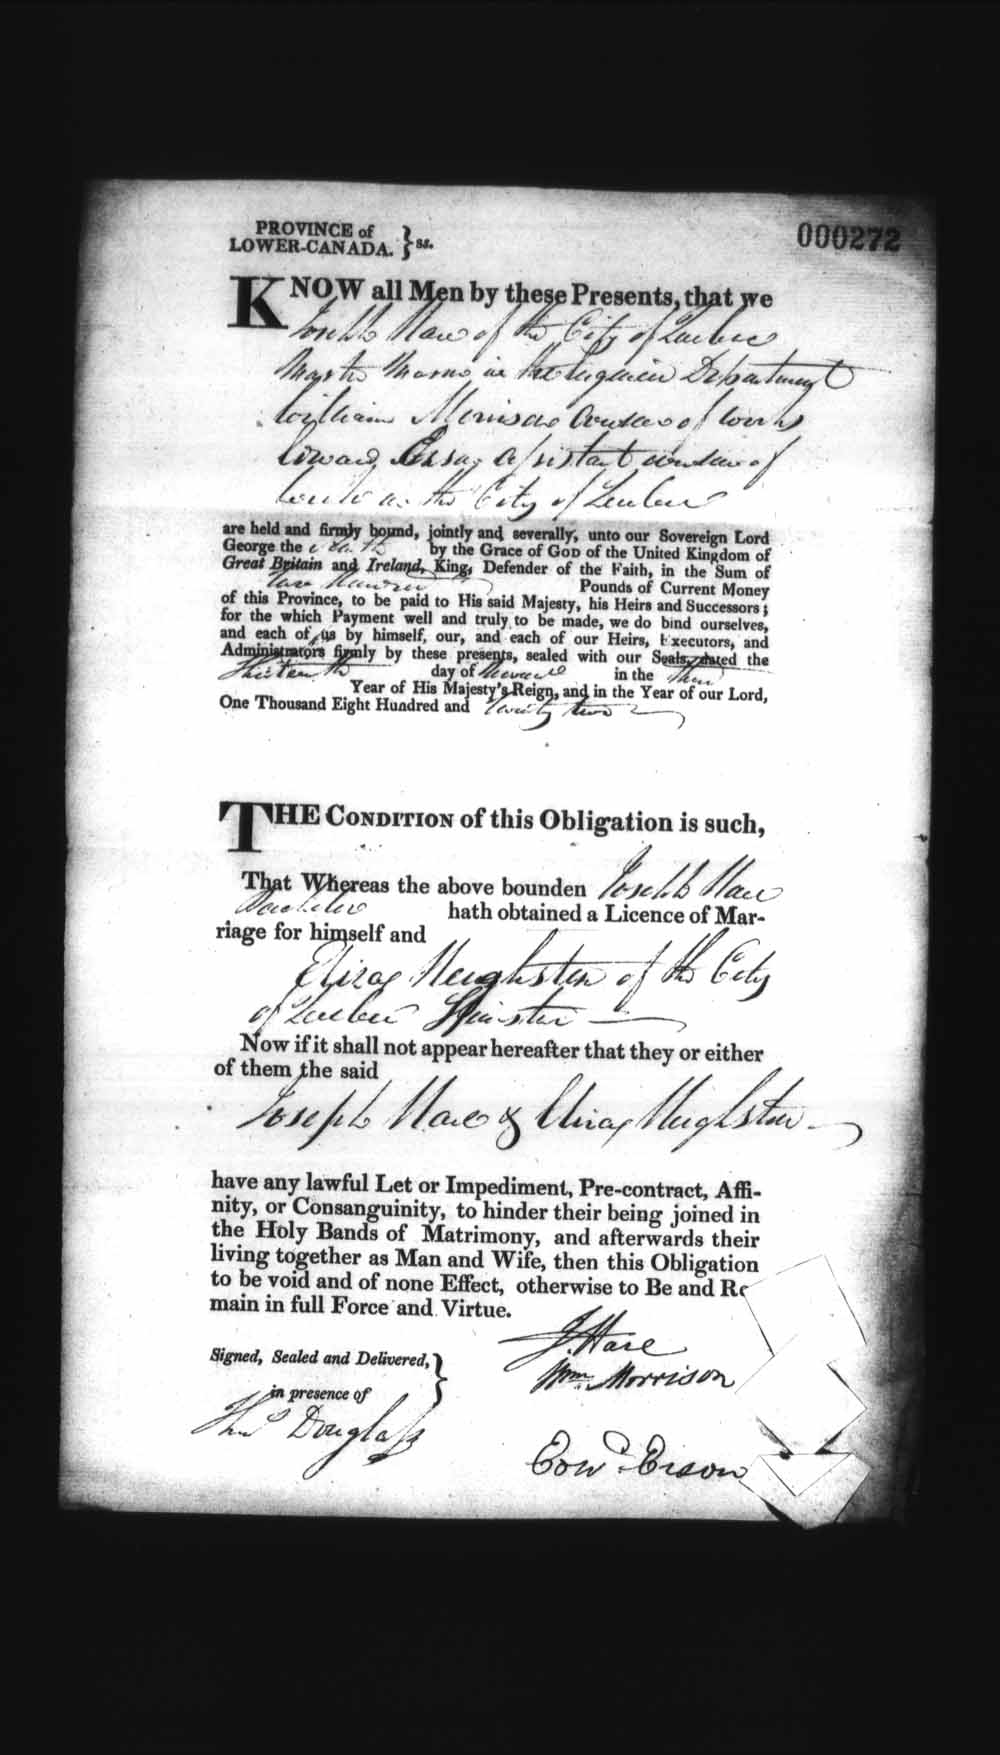 PROVINCE of
LOWER-CANADA. } ss.
000272
KNOW all Men by these Presents, that we
Joseph Hare of the City of Quebec
Master Mason in the Engineer Department
William Morrison Overseer of Works
Edward Assistant overseer of
works in the City of Quebec
are held and firmly bound, jointly and severally, unto our Sovereign Lord
George the fourth by the Grace of GOD of the United Kingdom of
Great Britain and Ireland, King, Defender of the Faith, in the Sum of
Two Hundred Pounds of Current Money
of this Province, to be paid to His said Majesty, his Heirs and Successors;
for the which Payment well and truly to be made, we do bind ourselves,
and each of us by himself, our, and each of our Heirs, Executors, and
Administrators firmly by these presents, sealed with our Seals, dated the
Thirteenth day of in the third
Year of His Majesty's Reign, and in the Year of our Lord,
One Thousand Eight Hundred and Twenty two
THE CONDITION of this Obligation is such,
That Whereas the above bounden Joseph Hare
Bachelor hath obtained a Licence of Mar-
riage for himself and
Eliza Heighston of the City
of Quebec Spinster
Now if it shall not appear hereafter that they or either
of them the said
Joseph Hare & Eliza Heighston
have any lawful Let or Impediment, Pre-contract, Affi-
nity, or Consanguinity, to hinder their being joined in
the Holy Bands of Matrimony, and afterwards their
living together as Man and Wife, then this Obligation
to be void and of none Effect, otherwise to Be and Re
main in full Force and Virtue.
J. Hare
Signed, Sealed and Delivered, }
Wm. Morrison
in presence of
Thos Douglass
Edwd